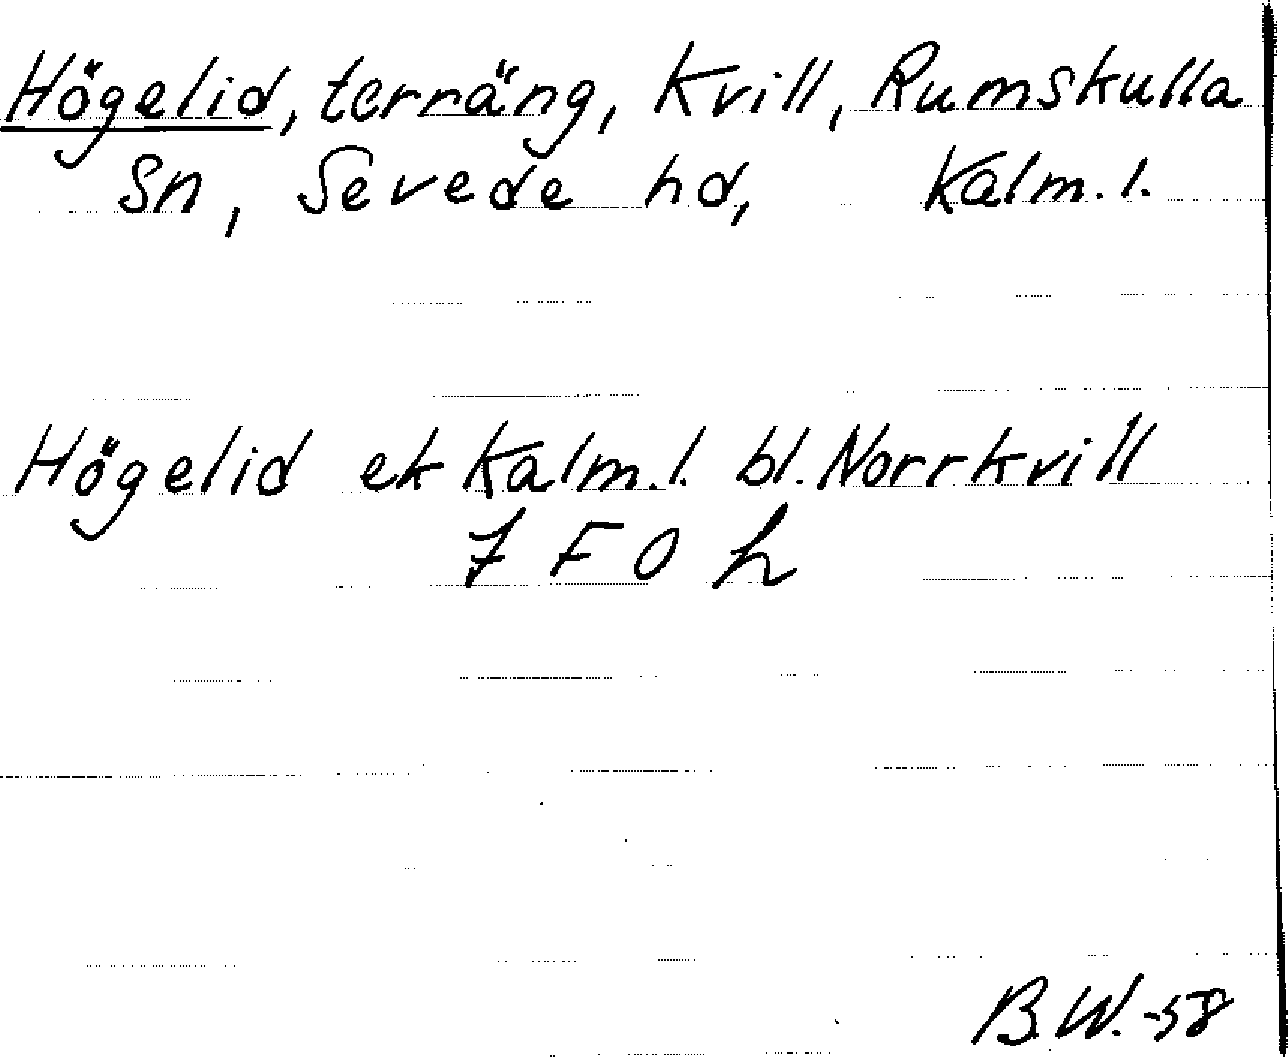 Högelid, terräng, Kvill, Rumskulla
Sn, Sevede hd, Kalm. l.
Högelid ek Kalm. l. bl. Norrkvill
7 F 0 h
B.W.-58